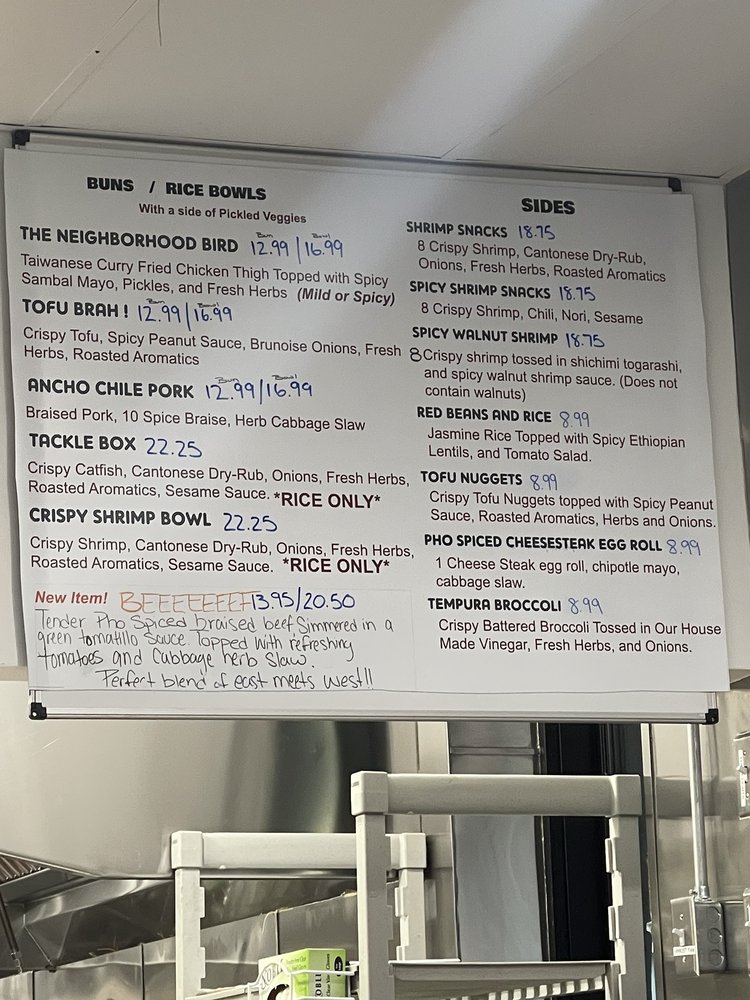 BUNS / RICE BOWLS
With a side of Pickled Veggies
THE NEIGHBORHOOD BIRD Bun 12.99 / Bowl 16.99
Taiwanese Curry Fried Chicken Thigh Topped with Spicy
Sambal Mayo, Pickles, and Fresh Herbs (Mild or Spicy)
TOFU BRAH ! Bun 12.99 / Bowl 16.99
Crispy Tofu, Spicy Peanut Sauce, Brunoise Onions, Fresh
Herbs, Roasted Aromatics
ANCHO CHILE PORK Bun 12.99 / Bowl 16.99
Braised Pork, 10 Spice Braise, Herb Cabbage Slaw
TACKLE BOX 22.25
Crispy Catfish, Cantonese Dry-Rub, Onions, Fresh Herbs,
Roasted Aromatics, Sesame Sauce. *RICE ONLY*
CRISPY SHRIMP BOWL 22.25
Crispy Shrimp, Cantonese Dry-Rub, Onions, Fresh Herbs,
Roasted Aromatics, Sesame Sauce. *RICE ONLY*
New Item! BEEEEEEEF 13.95/20.50
Tender Pho Spiced braised beef, Simmered in a
green tomatillo Sauce. Topped with refreshing
tomatoes and Cabbage herb Slaw.
Perfect blend of east meets west!!
SIDES
SHRIMP SNACKS 18.75
8 Crispy Shrimp, Cantonese Dry-Rub,
Onions, Fresh Herbs, Roasted Aromatics
SPICY SHRIMP SNACKS 18.75
8 Crispy Shrimp, Chili, Nori, Sesame
SPICY WALNUT SHRIMP 18.75
8 Crispy shrimp tossed in shichimi togarashi,
and spicy walnut shrimp sauce. (Does not
contain walnuts)
RED BEANS AND RICE 8.99
Jasmine Rice Topped with Spicy Ethiopian
Lentils, and Tomato Salad.
TOFU NUGGETS 8.99
Crispy Tofu Nuggets topped with Spicy Peanut
Sauce, Roasted Aromatics, Herbs and Onions.
PHO SPICED CHEESESTEAK EGG ROLL 8.99
1 Cheese Steak egg roll, chipotle mayo,
cabbage slaw.
TEMPURA BROCCOLI 8.99
Crispy Battered Broccoli Tossed in Our House
Made Vinegar, Fresh Herbs, and Onions.